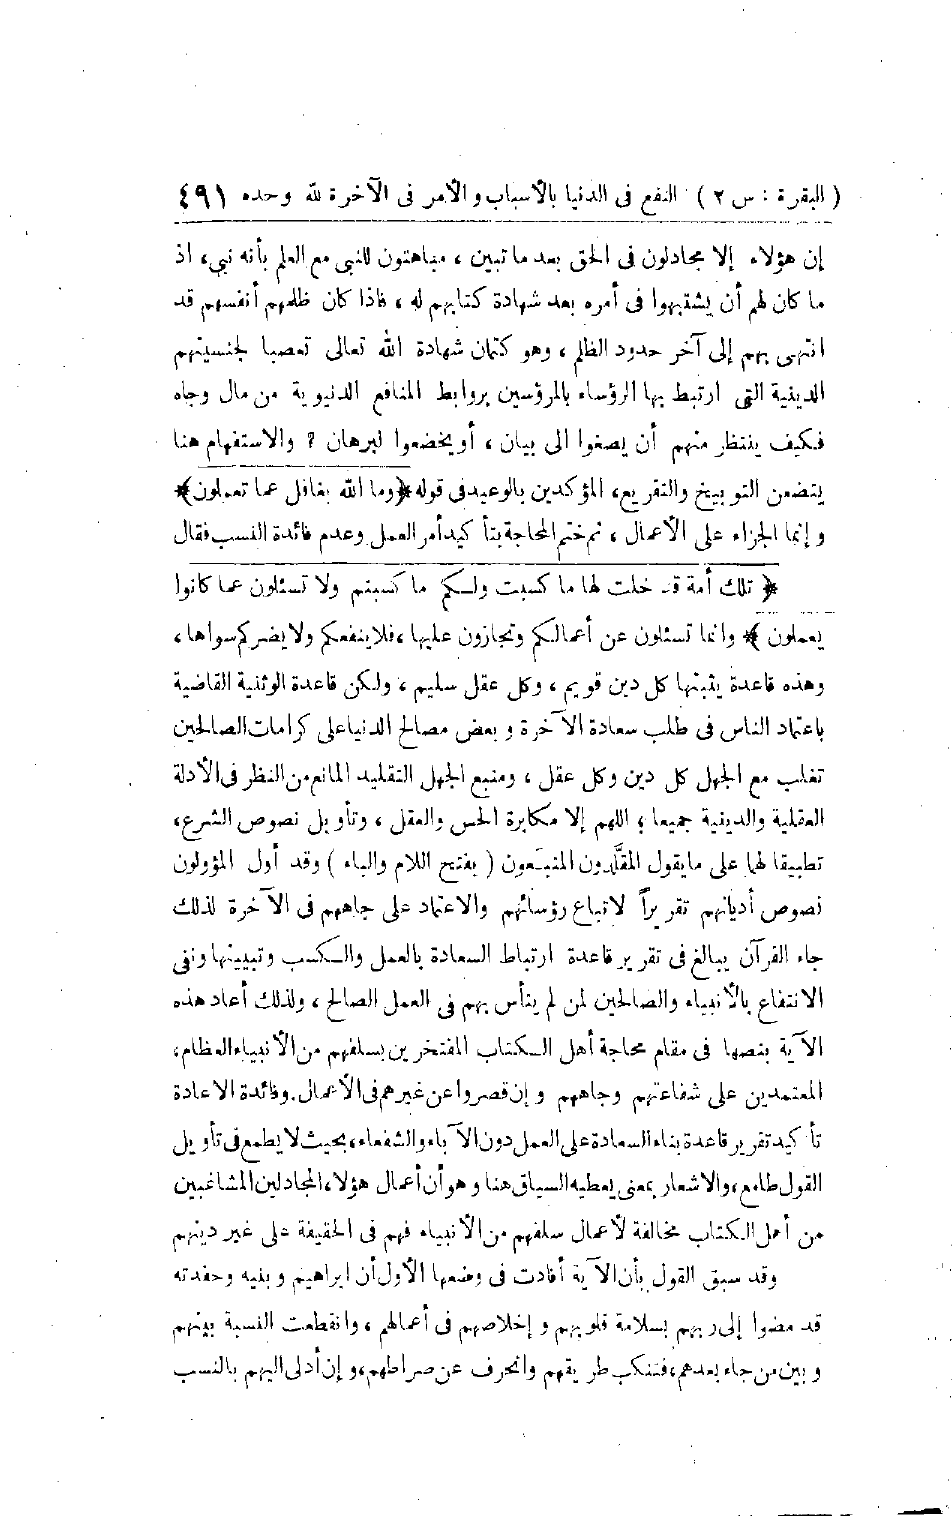 ( البقرة : س ٢ ) النفع فى الدنيا بالأسباب والأمر فى الآخرة لله وحده ٤٩١
إن هؤلاء إلا مجادلون فى الحق بعد ما تبين ، مباهتون للنبى مع العلم بأنه نبي، اذ
ما كان لهم أن يشتبهوا فى أمره بعد شهادة كتابهم له ، فاذا كان ظلمهم أنفسهم قد
انتهى بهم إلى آخر حدود الظلم ، وهو كتمان شهادة الله تعالى تعصبا لجنسيتهم
الدينية التى ارتبط بها الرؤساء بالمرؤسين بروابط المنافع الدنيوية من مال وجاه
فكيف ينتظر منهم أن يصغوا الى بيان ، أو يخضعوا لبرهان ؟ والاستفهام هنا
يتضمن التوبيخ والتقريع، المؤكدين بالوعيد فى قوله ﴿وما الله بغافل عما تعملون﴾
وإنما الجزاء على الأعمال ، ثم ختم المحاجة بتأكيد أمر العمل وعدم فائدة النسب فقال
﴿ تلك أمة قد خلت لها ما كسبت ولكم ما كسبتم ولا تسئلون عما كانوا
يعملون ﴾ وانما تسئلون عن أعمالكم وتجازون عليها ، فلا ينفعكم ولا يضركم سواها ،
وهذه قاعدة يثبتها كل دين قويم ، وكل عقل سليم ، ولكن قاعدة الوثنية القاضية
باعتماد الناس فى طلب سعادة الآخرة وبعض مصالح الدنيا على كرامات الصالحين
تغلب مع الجهل كل دين وكل عقل ، ومنبع الجهل التقليد المانع من النظر فى الأدلة
العقلية والدينية جميعا ؛ اللهم إلا مكابرة الحس والعقل ، وتأويل نصوص الشرع ،
تطبيقا لهما على ما يقول المقلَّدون المتبَعون ( بفتح اللام والباء ) وقد أول المؤولون
نصوص أديانهم تقريراً لاتباع رؤسائهم والاعتماد على جاههم فى الآخرة لذلك
جاء القرآن يبالغ فى تقرير قاعدة ارتباط السعادة بالعمل والكسب وتبيينها ونفى
الانتفاع بالأنبياء والصالحين لمن لم يتأس بهم فى العمل الصالح ، ولذلك أعاد هذه
الآية بنصها فى مقام محاجة أهل الكتاب المفتخرين بسلفهم من الأنبياء العظام،
المعتمدين على شفاعتهم وجاههم وإن قصروا عن غيرهم فى الأعمال. وفائدة الاعادة
تأكيد تقرير قاعدة بناء السعادة على العمل دون الآباء والشفعاء، بحيث لا يطمع فى تأويل
القول طامع، والاشعار بمعنى يعطيه السياق هنا وهو أن أعمال هؤلاء المجادلين المشاغبين
من أهل الكتاب مخالفة لأعمال سلفهم من الأنبياء فهم فى الحقيقة على غير دينهم
وقد سبق القول بأن الآية أفادت فى وضعها الأول أن ابراهيم وبنيه وحفدته
قد مضوا إلى ربهم بسلامة قلوبهم وإخلاصهم فى أعمالهم ، وانقطعت النسبة بينهم
وبين من جاء بعدهم، فتنكب طريقهم وانحرف عن صراطهم، وإن أدلى اليهم بالنسب